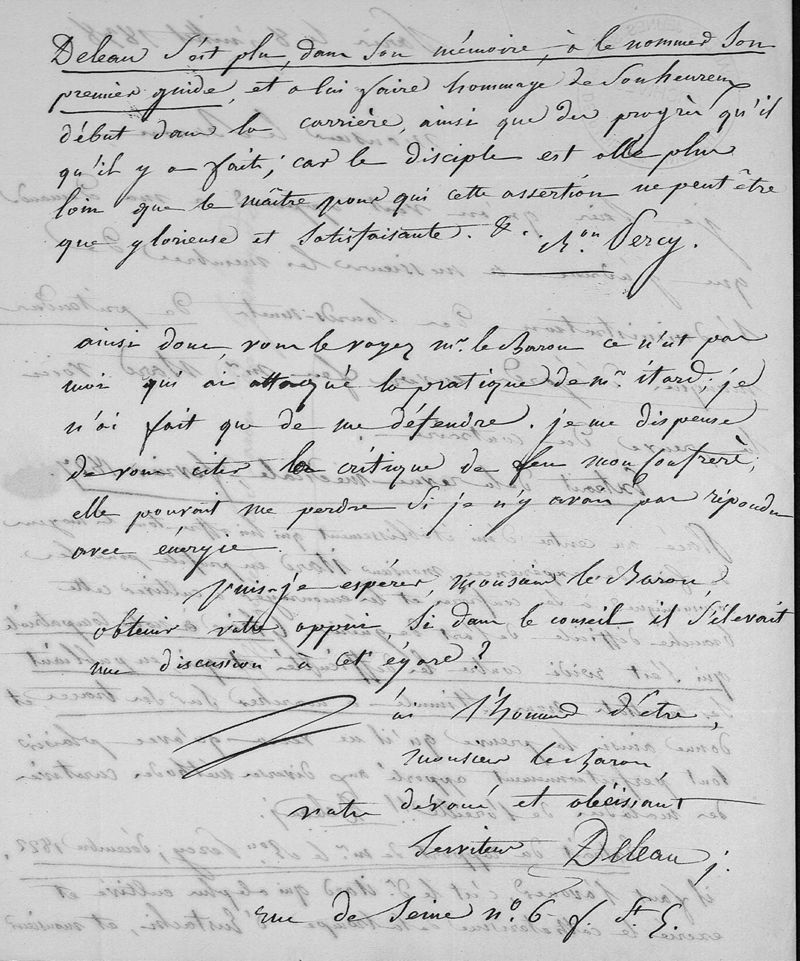 Deleau s'est plu, dans son mémoire, à le nommer son
premier guide, et a lui faire hommage de son heureux
début dans la carrière, ainsi que des progrès qu'il
qu'il y a fait; car le disciple est allé plus
loin que le maître pour qui cette assertion ne peut être
que glorieuse et satisfaisante. &. Bon. Percy.
ainsi donc, vous le voyez mr. le Baron ce n'est pas
moi qui ai attaqué la pratique de mr. itard; je
n'ai fait que de me défendre. je me dispense
de vous citer la critique de feu mon confrère;
elle pouvait me perdre si je n'y avais pas répondu
avec énergie.
puis-je espérer, monsieur le Baron,
obtenir votre appui, si dans le conseil il s'élevait
une discussion à cet égard?
ai l'honneur d'être,
monsieur le Baron
votre dévoué et obéissant
Serviteur Deleau j.
rue de Seine no. 6 f. St. G.